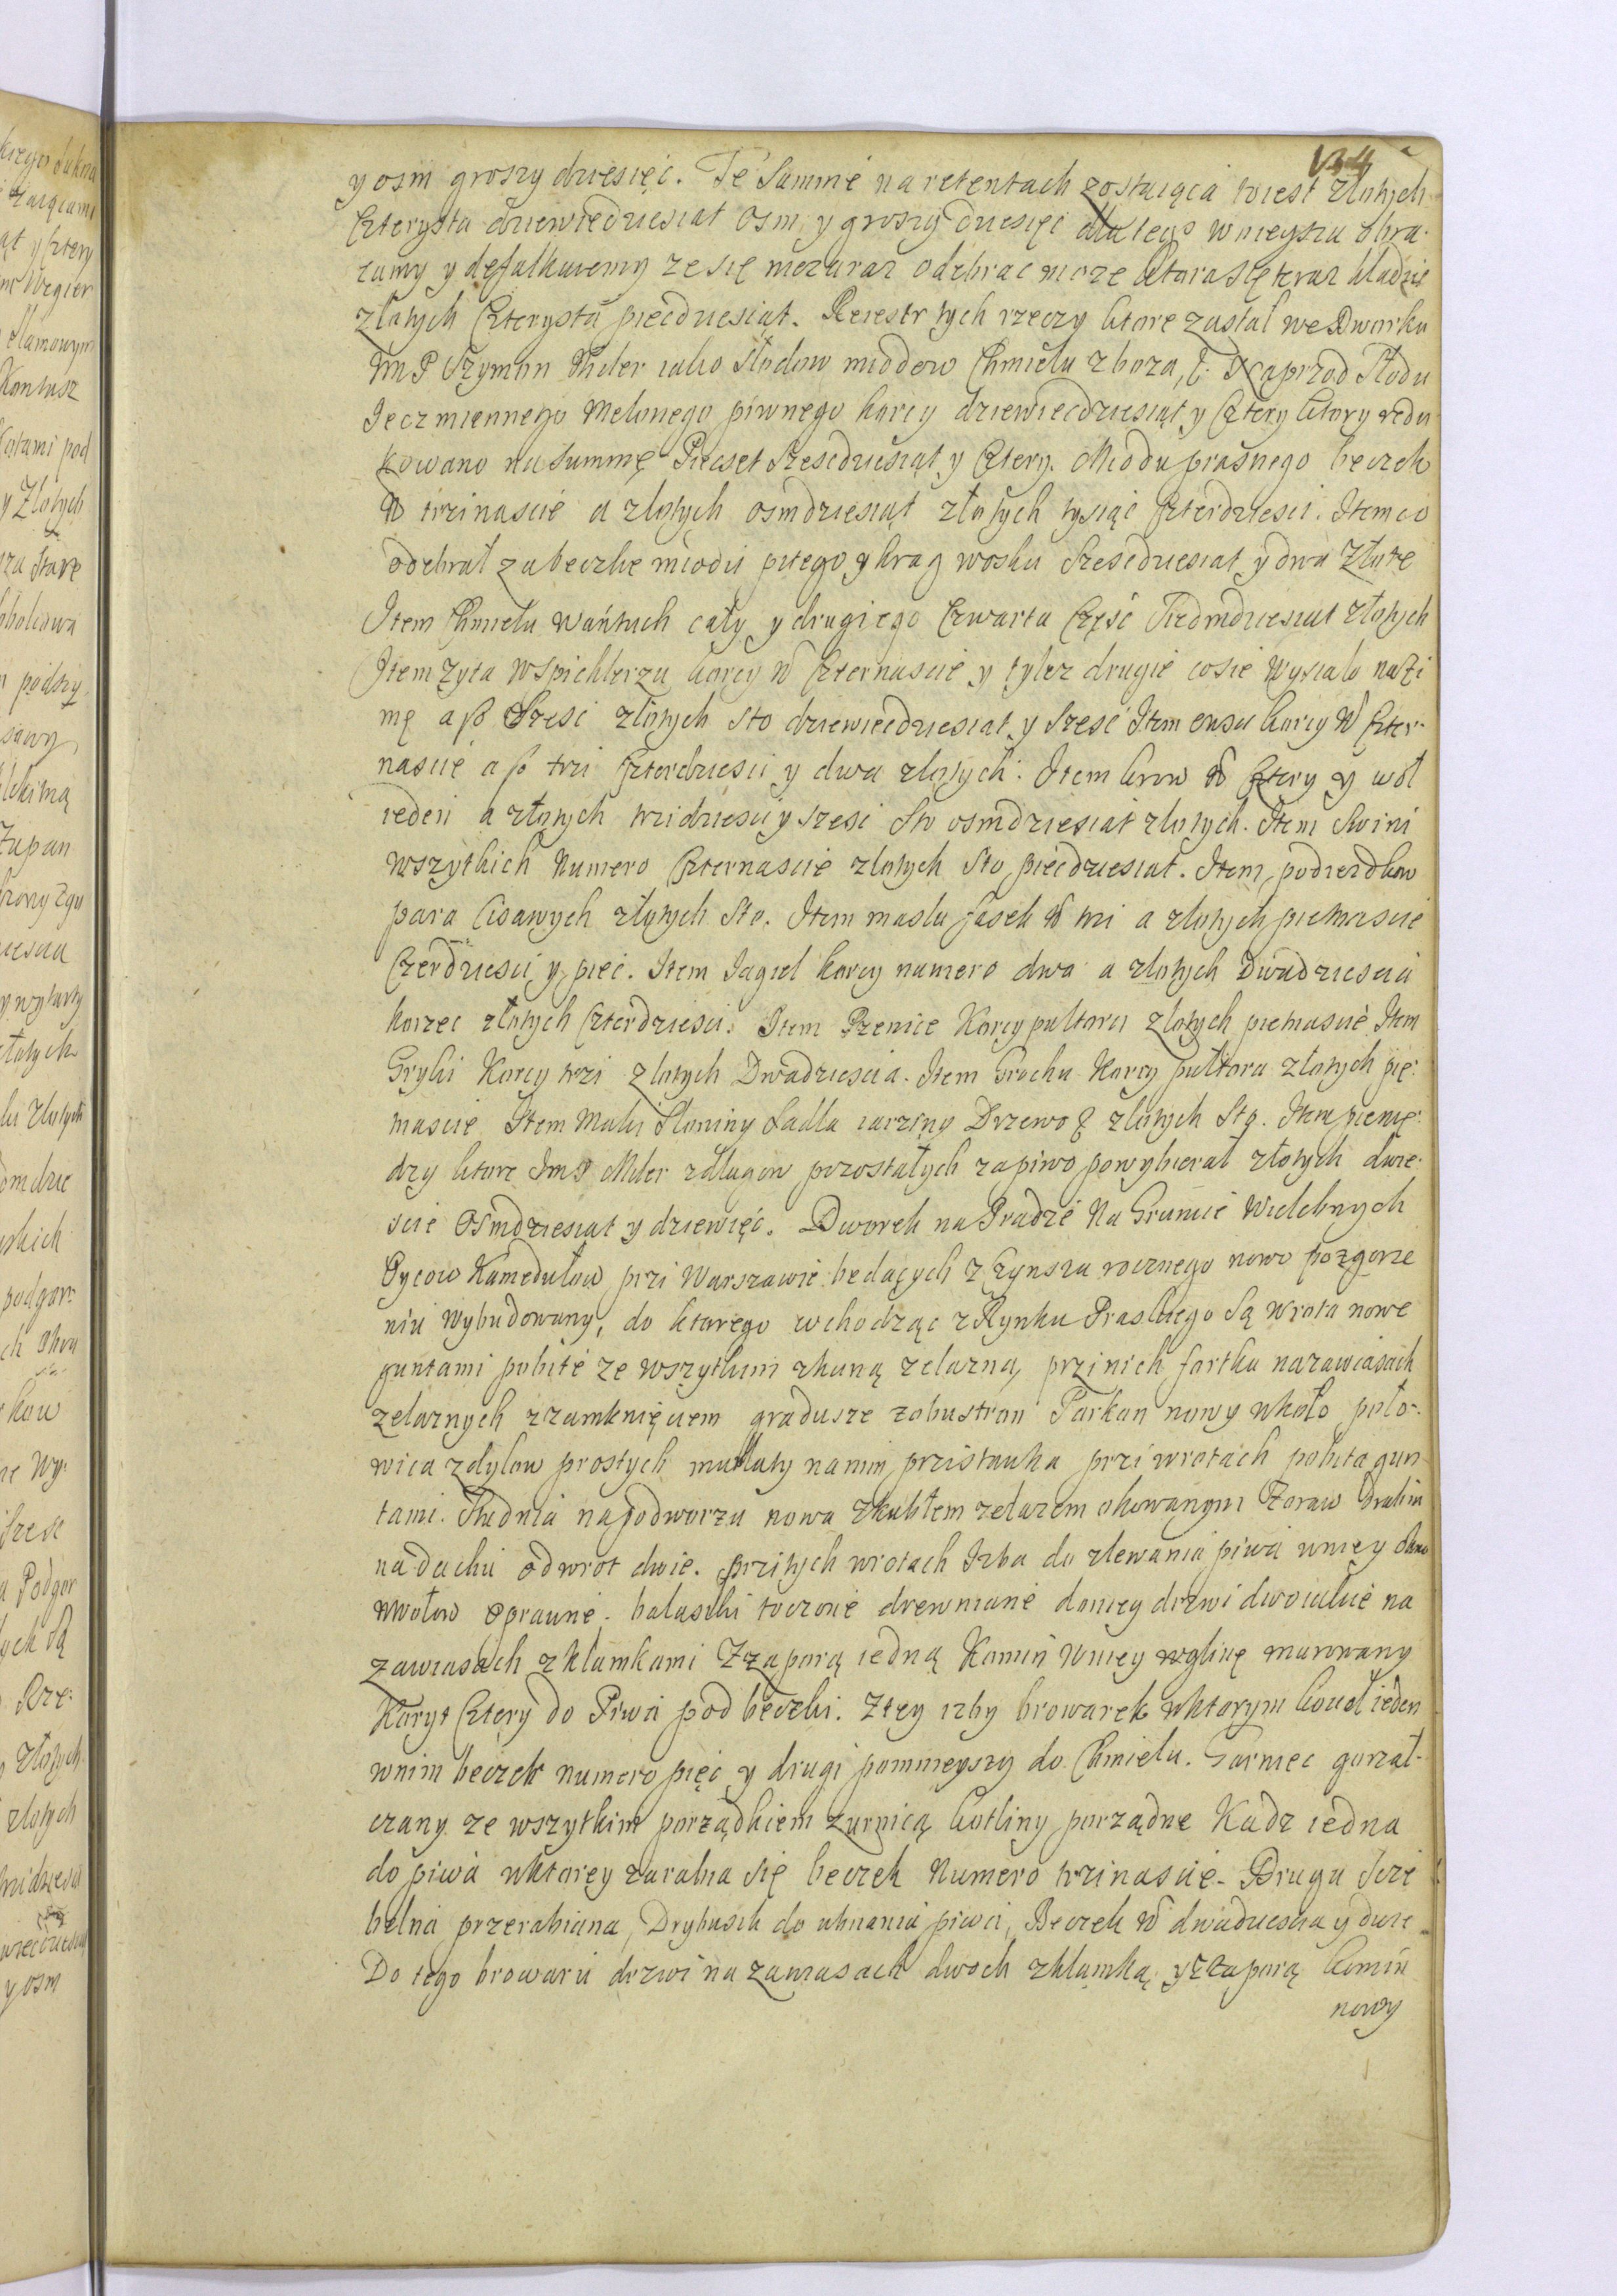 134
y osm groszy dziesięć. Te Summę na retentach zostaiącą to iest złotych
Czterysta dziewiedziesiat osm y groszy dziesięć dla tego wnieyszą obra-
camy y defalkuiemy ze się niezaraz odebrac moze ktora się teraz kładzie
złotych Czterysta piecdziesiąt. Reiestr tych rzeczy ktore zastał we Dworku
Im P Szymon Miler iako Słodow miodow Chmielu zboza, &. Naprzod Słodu
Ieczmiennego Melonego piwnego korcy dziewiecdziesiąt y Cztery ktory redu
kowano na summę Piecset szescdziesiąt y Cztery. Miodu praśnego beczek
No trzinascie a złotych osmdziesiąt złotych tysiąc Czterdziesci. Item co
odebrał za beczkę miodu pitego y krag wosku szescdziesiat y dwa złote
Item Chmielu wańtuch cały y drugiego Czwarta Część siedmdziesiat złotych
Item zyta w spichlerzu korcy No Czternascie y tylez drugie co sie wysiało na zi
mę a fl szesc złotych sto dziewiecdziesiat y szesc Item owsa korcy No Czter-
nascie a fl trzi Czterdziesci y dwa złotych. Item krow No Cztery y woł
ieden a złotych trzidziesci y szesc sto osmdziesiat złotych. Item swini
wszytkich Numero Czternascie złotych sto piecdziesiat. Item podiezdkow
para Cisawych złotych sto. Item masła fasek No trzi a złotych pietnascie
Czterdziesci y pięc. Item Iagieł korcy numero dwa a złotych Dwadziescia
korzec złotych Czterdziesci. Item Pzenice Korcy pułtora złotych pietnascie Item
Gryki Korcy trzi złotych Dwadziescia. Item Grochu Korcy pułtora złotych pię-
tnascie Item Maki Słoniny sadła iarziny Drzewo & złotych sto. Item pienię-
dzy ktore Im P Miler z dlugow pozostałych za piwo powybierał złotych dwie-
scie osmdziesiat y dziewięć. Dworek na Pradze na Gruncie Wielebnych
Oycow Kamedułow przi Warszawie będących z Czynszu rocznego nowo po zgorze
niu wybudowany, do ktorego wchodząc z Rynku Praskiego są wrota nowe
guntami pobite ze wszytkim z kuną zelazną, przi nich fortka na zawiasach
zelaznych z zamknięciem gradusze z obu stron Parkan nowy wkoło poło-
wica z dylow prostych na nim przistawka przi wrotach pobita gun
tami. Studnia na podworzu nowa z kubłem zelazem okowanym Zoraw Drabin
na dachu od wrot dwie. przi tych wrotach Izba do zlewania piwa w niey okna
w ołow oprawne. balaski toczone drewniane do niey drzwi dwoiakie na
zawiasach z klamkami z zaporą iedną Komin w niey w glinę murowany
Koryt Cztery do Piwa pod beczki. Z tey izby browarek w ktorym kocieł ieden
w nim beczek numero pięć y drugi pomnieyszy do Chmielu. Garniec gorzał-
czany ze wszytkim porządkiem z urnicą kotliny porządne Kadz iedna
do piwa w ktorey zarabia się beczek Numero trzinascie. Druga
przerabiana, Drybusik do piwa, Beczek No dwadziescia y dwie
Do tego browaru drzwi na zawiasach dwoch z klamką y z zaporą komin
nowy